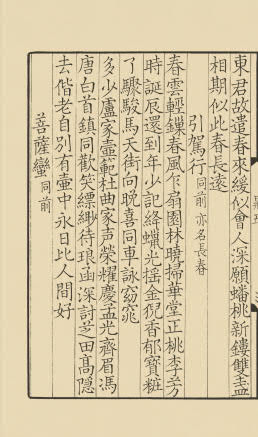 東君故遣春來緩似會人深願蟠桃新鏤雙盞
相期似此春長遠
引駕行同前亦名長春
春雲輕鏁春風乍扇園林曉掃華堂正桃李芳
時誕辰還到年少記絳蠟光揺金猊香郁寶粧
了驟駿馬天街向晚喜同車詠窈窕
多少盧家壼範杜曲家聲榮耀慶孟光齊眉馮
唐白首鎮同歡笑縹緲待琅函深討芝田高隱
去偕老自別有壷中永日比人間好
菩薩蠻同前